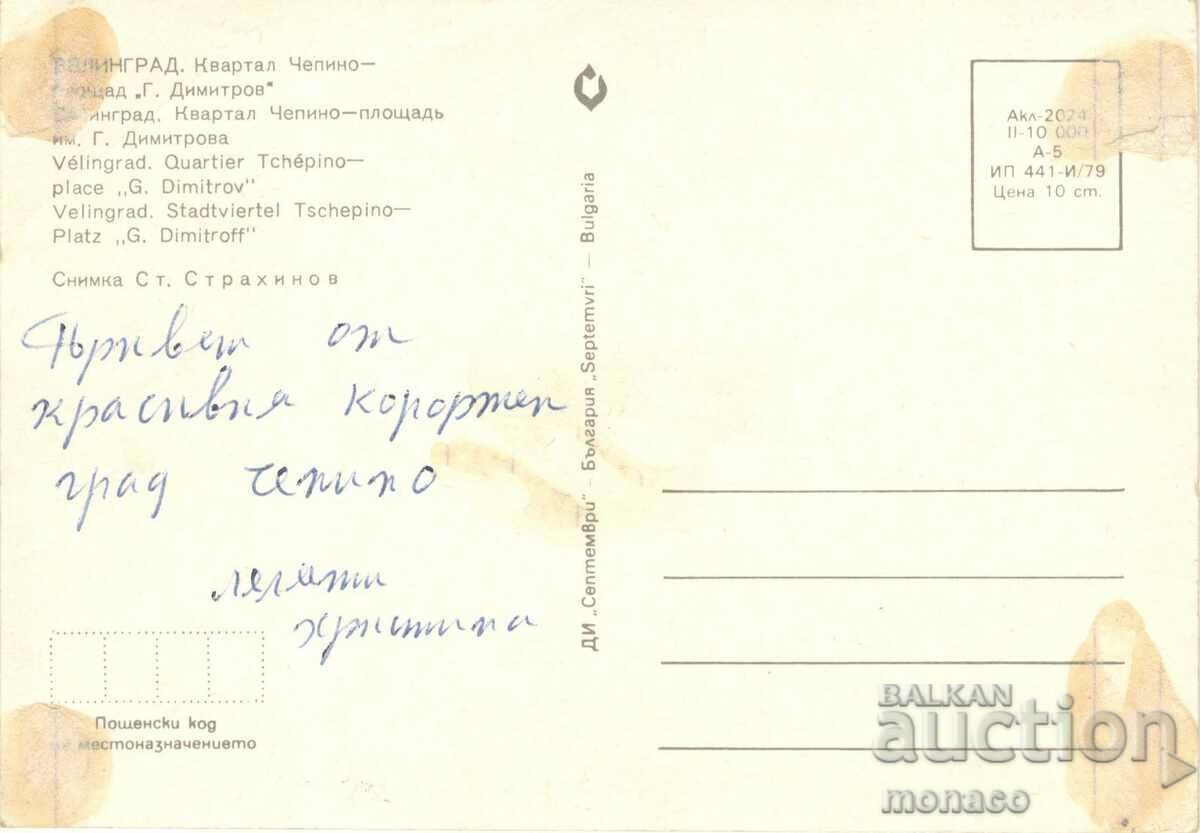 ВЕЛИНГРАД. Квартал Чепино—
площад „Г. Димитров"
Велинград. Квартал Чепино—площадь
им. Г. Димитрова
Vélingrad. Quartier Tchépino—
place „G. Dimitrov"
Velingrad. Stadtviertel Tschepino—
Platz „G. Dimitroff"
Снимка Ст. Страхинов
от
красивия
град Чепино
Християна
Пощенски код
на местоназначението
ДИ „Септември" – България „Septemvri" – Bulgaria
Акл-2024
II-10 000
А-5
ИП 441-И/79
Цена 10 ст.
BALKAN
auction
monaco